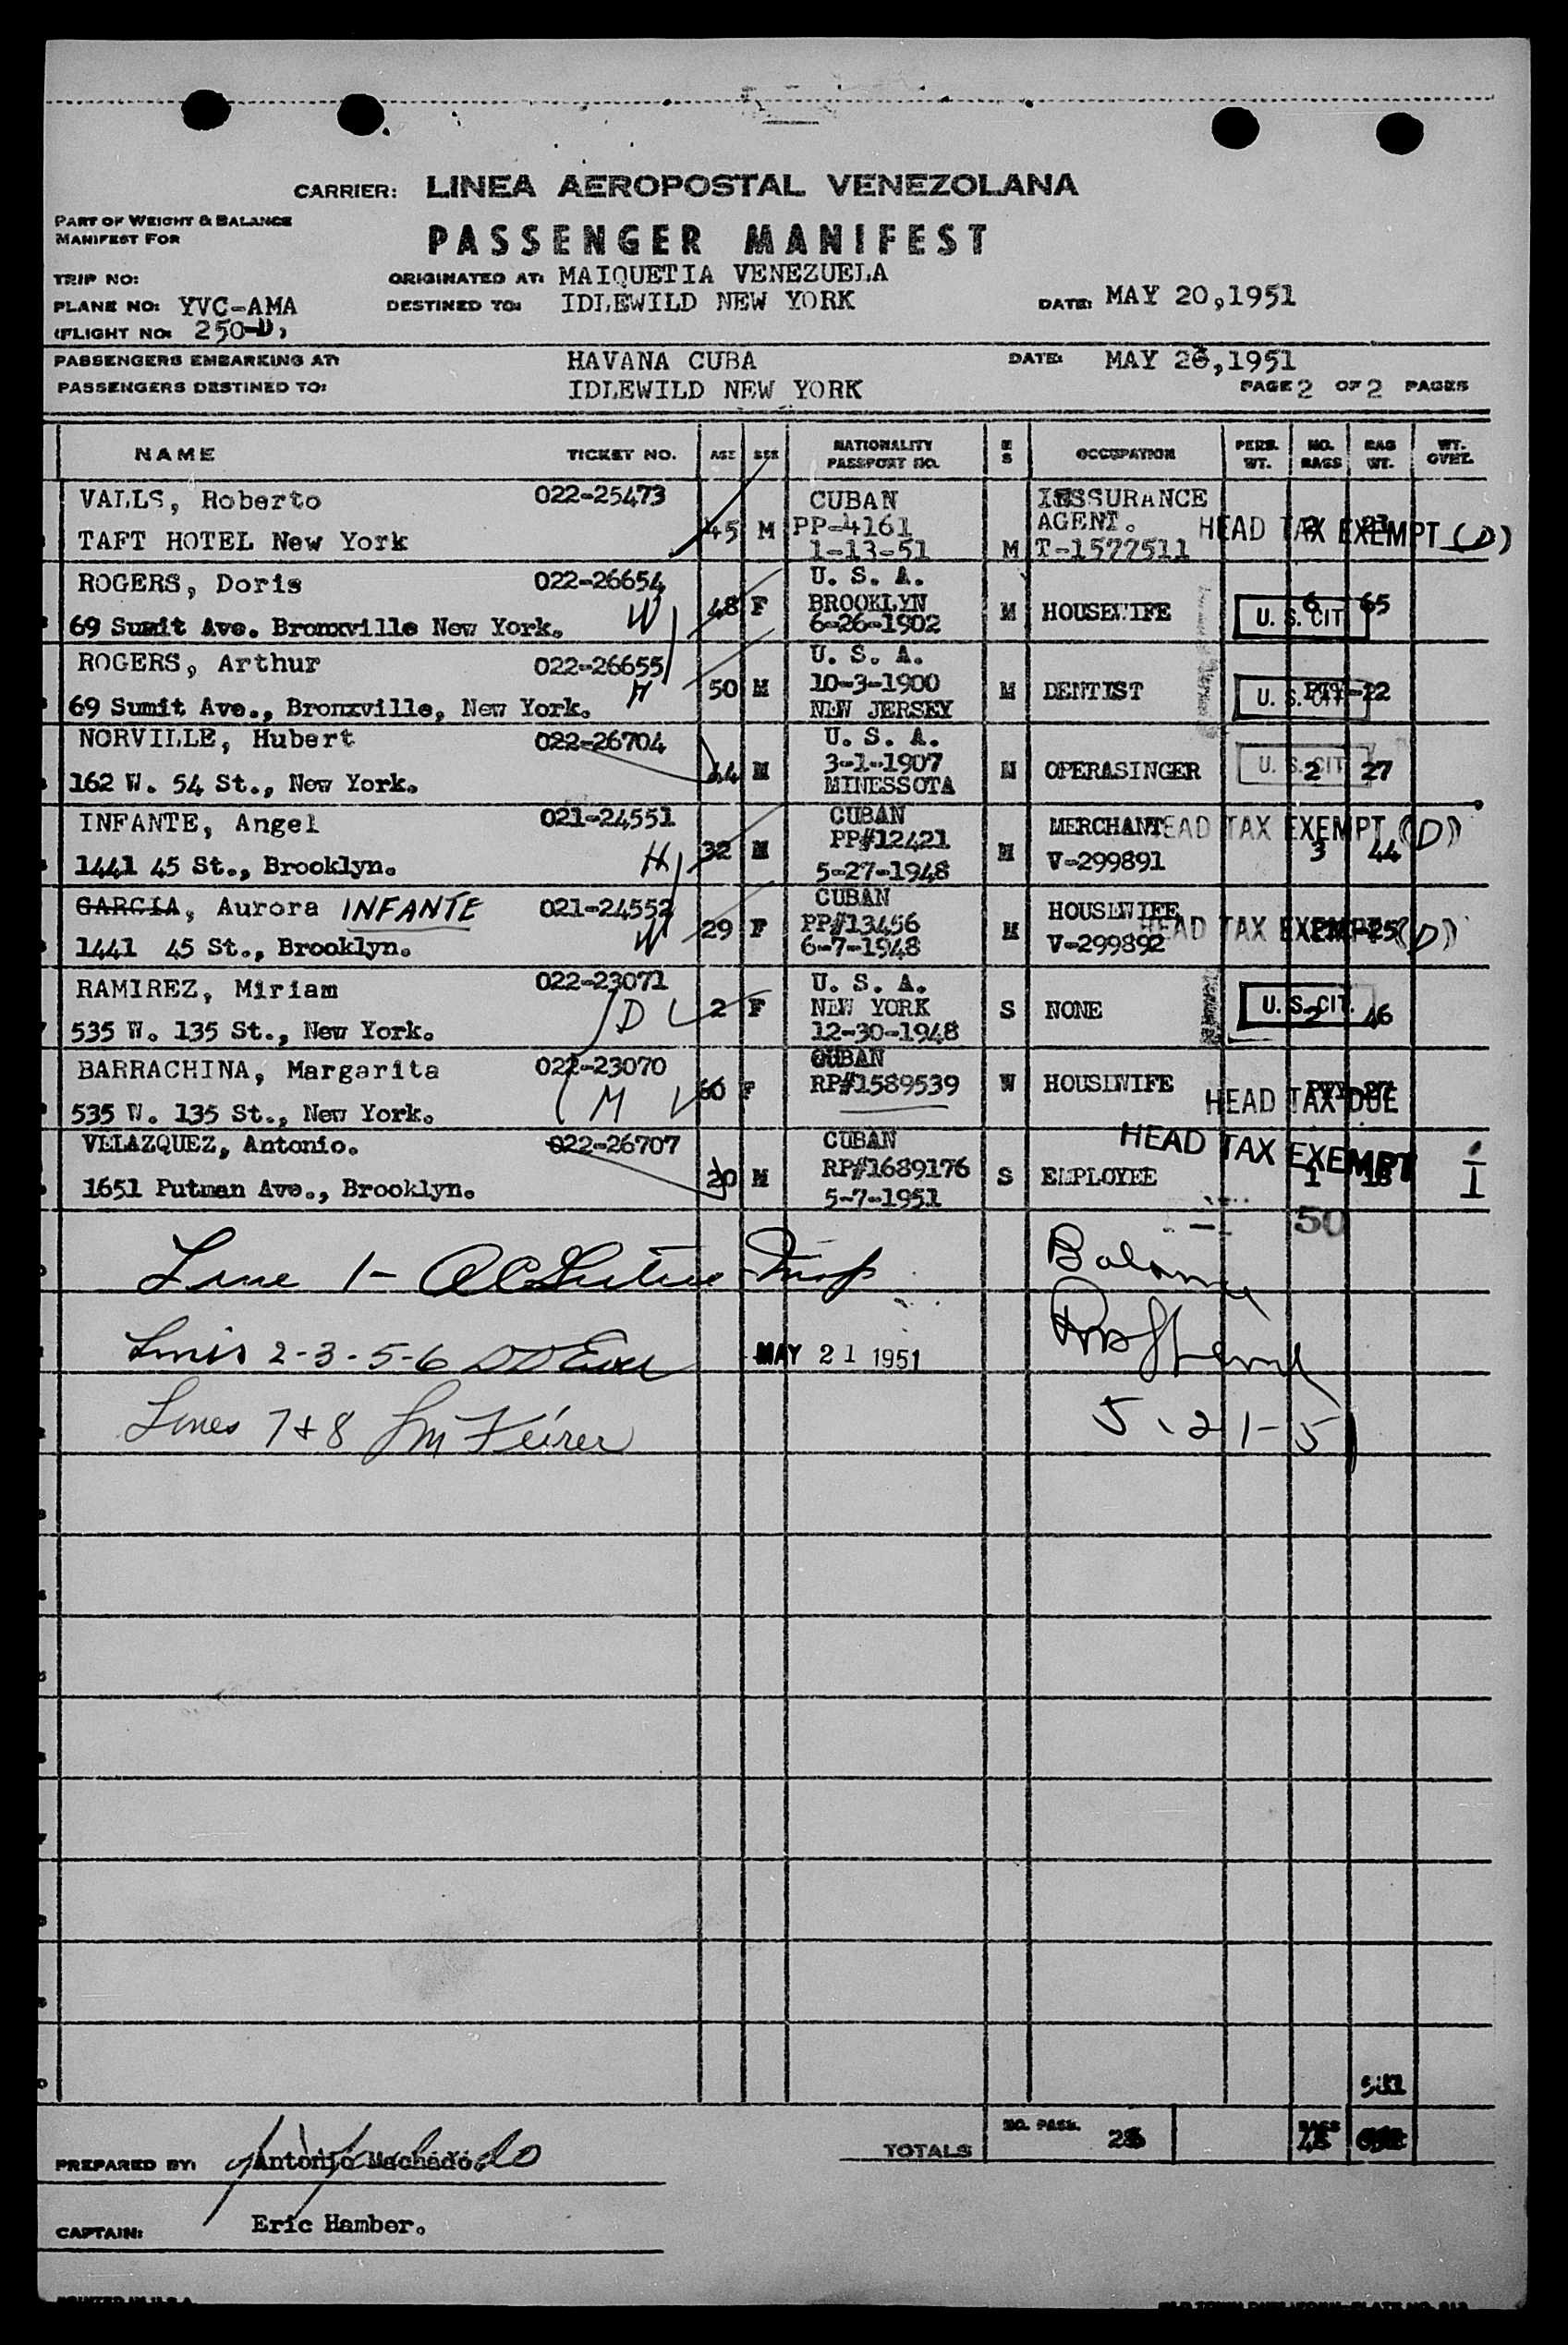 CARRIER: LINEA AEROPOSTAL VENEZOLANA
PART OF WEIGHT & BALANCE
MANIFEST FOR
PASSENGER MANIFEST
TRIP NO:
ORIGINATED AT: MAIQUETIA VENEZUELA
PLANE NO: YVC-AMA
DESTINED TO: IDLEWILD NEW YORK
DATE: MAY 20,1951
(FLIGHT NO: 250-D)
PASSENGERS EMBARKING AT: HAVANA CUBA DATE: MAY 20,1951
PASSENGERS DESTINED TO: IDLEWILD NEW YORK PAGE 2 OF 2 PAGES
NAME TICKET NO. AGE SEX NATIONALITY PASSPORT NO. M S OCCUPATION PERS. WT. NO. BAGS BAG WT. WT. OVHT.
VALLS, Roberto 022-25473 CUBAN INSSURANCE
45 M PP-4161 AGENT. HEAD TAX EXEMPT (D) 2 21
TAFT HOTEL New York 1-13-51 M T-1577511
ROGERS, Doris 022-26654 U. S. A.
W 48 F BROOKLYN M HOUSEWIFE U. S. CIT 6 65
69 Sumit Ave. Bronxville New York. 6-26-1902
ROGERS, Arthur 022-26655 U. S. A.
H 50 M 10-3-1900 M DENTIST U. S. CIT -22
69 Sumit Ave., Bronxville, New York. NEW JERSEY
NORVILLE, Hubert 022-26704 U. S. A.
44 M 3-1-1907 M OPERASINGER U. S. CIT 2 27
162 W. 54 St., New York. MINESSOTA
INFANTE, Angel 021-24551 CUBAN
H 32 M PP#12421 M MERCHANT HEAD TAX EXEMPT (D) 3 44
1441 45 St., Brooklyn. 5-27-1948 V-299891
GARCIA, Aurora INFANTE 021-24552 CUBAN HOUSEWIFE
W 29 F PP#13456 M HEAD TAX EXEMPT (D) -25
1441 45 St., Brooklyn. 6-7-1948 V-299892
RAMIREZ, Miriam 022-23071 U. S. A.
D 2 F NEW YORK S NONE U. S. CIT. 2 46
535 W. 135 St., New York. 12-30-1948
BARRACHINA, Margarita 022-23070 CUBAN
M 60 F RP#1589539 W HOUSEWIFE HEAD TAX DUE
535 W. 135 St., New York.
VELAZQUEZ, Antonio. 022-26707 CUBAN HEAD TAX EXEMPT
20 M RP#1689176 S EMPLOYEE 1 18 I
1651 Putman Ave., Brooklyn. 5-7-1951
50
Line 1-
Balance
Lines 2-3-5-6
MAY 21 1951
Lines 7+8
5-21-51
531
TOTALS NO. PASS. BAGS
PREPARED BY: Antonio Machado.
CAPTAIN: Eric Hamber.
PRINTED IN U.S.A.